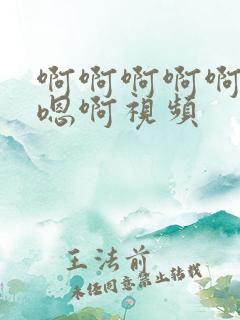 啊啊啊啊啊
嗯啊視頻
王法前
未经同意禁止转载